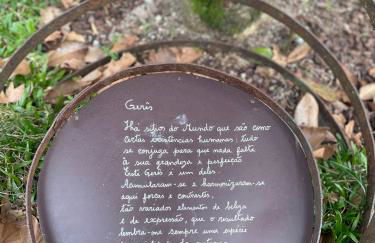 Gerês
Há sítios do Mundo que são como
certas existências humanas: tudo
se conjuga para que nada falte
à sua grandeza e perfeição
Este Gerês é um deles.
Acumularam-se e harmonizaram-se
aqui forças e contrastes,
tão variados elementos de beleza
e de expressão, que o resultado
lembra-me sempre uma espécie